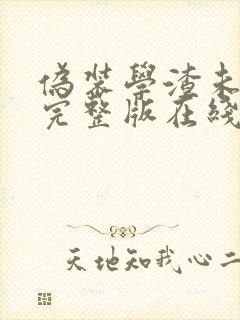 偽裝學渣未
完整版在綫
天地知我心二